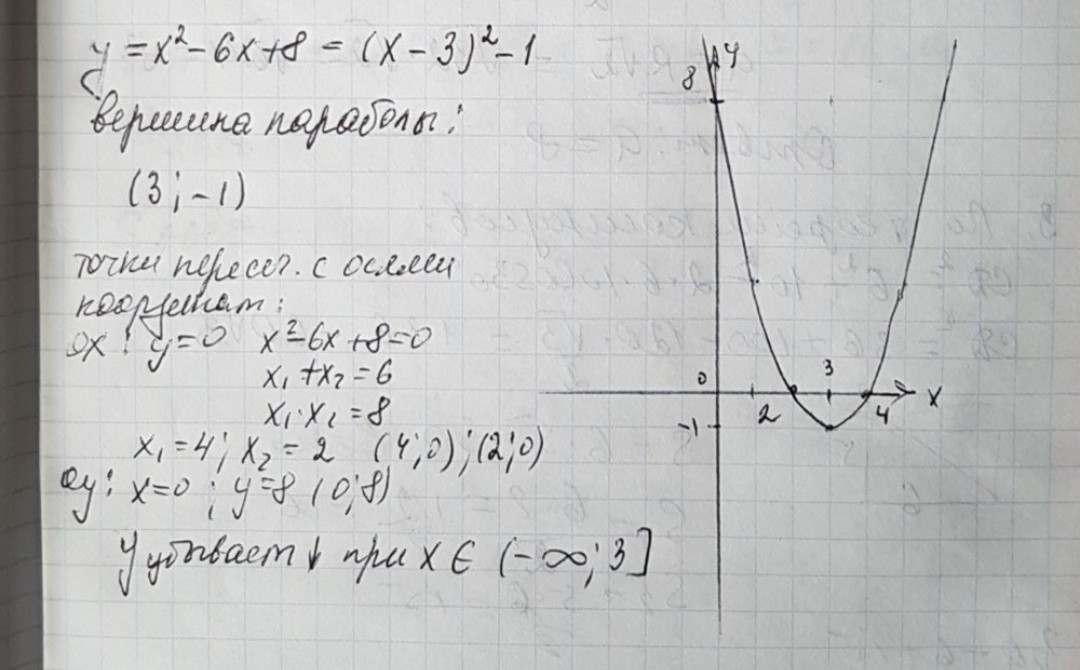 y = x² - 6x + 8 = (x - 3)² - 1
вершина параболы:
(3; -1)
точки пересеч. с осями
координат:
ox: y=0 x² - 6x + 8 = 0
x₁ + x₂ = 6
x₁ · x₂ = 8
x₁ = 4; x₂ = 2 (4; 0); (2; 0)
oy: x=0; y=8 (0; 8)
y убывает ↓ при x ∈ (-∞; 3]
y
8
3
0
x
2
4
-1